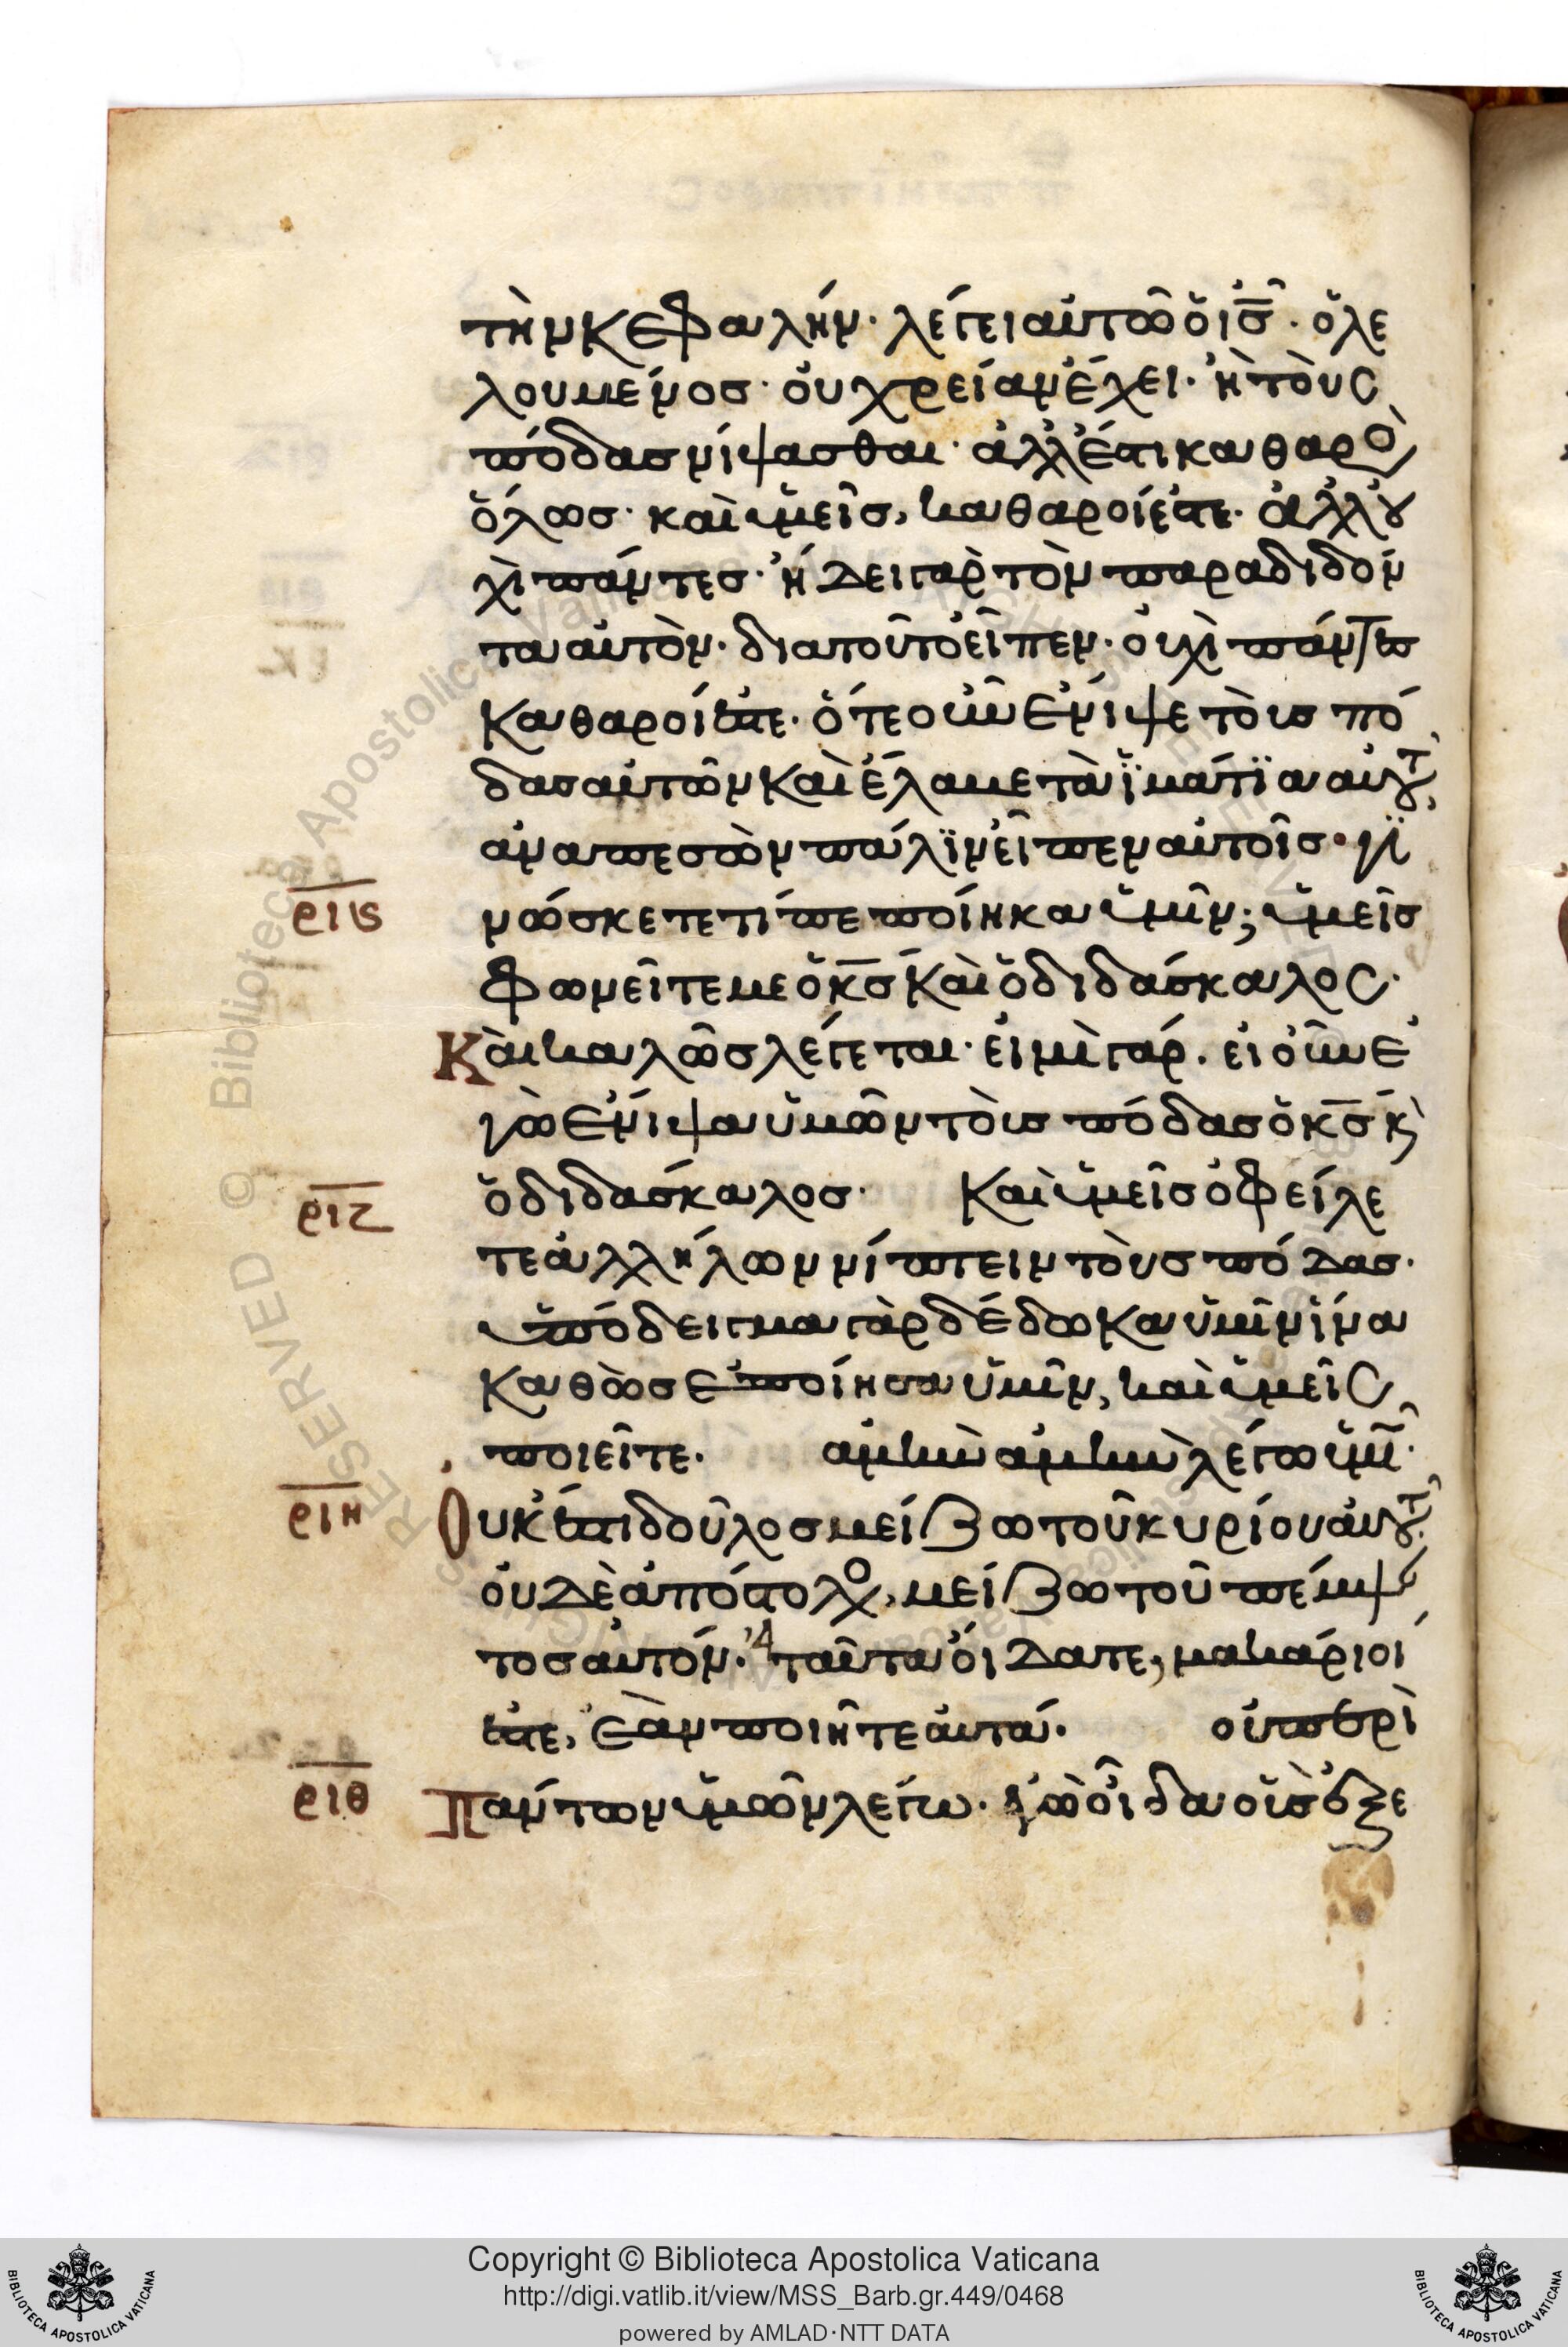 τὴν κεφαλήν· λέγει αὐτῶ ὁ ι̅σ̅· ὁ λε
λουμένος· οὐ χρείαν ἔχει· ἢ τοὺς
πόδας νίψασθαι· ἀλλ' ἔστι καθαρὸ
ὅλως· καὶ ὑμεῖς, καθαροί ἐστε· ἀλλ' οὐ
χὶ πάντες· ἤδει γὰρ τὸν παραδιδόν
τα αὐτὸν· διατοῦτο εἶπεν· οὐχὶ πάντες
καθαροί ἐστε· ὅτε οὖν ἔνιψε τοὺς πό
δας αὐτῶν καὶ ἔλαμε τὰ ἱμάτϊα αὐτοῦ,
αναπεσὼν πάλϊν εἶπεν αὐτοῖς· γϊ
ρ̅ι̅ϛ̅ νώσκετε τί πεποίηκα ὑμῖν; ὑμεῖς
φωνεῖτε με ὁ κ̅σ̅ καὶ ὁ διδάσκαλος·
Καὶ καλῶς λέγεται· εἰμὶ γάρ· εἰ οὖν ἐ
γὼ ἔνιψα ὑμῶν τοὺς πόδας ὁ κ̅σ̅ κὶ
ρ̅ι̅ζ̅ ὁ διδάσκαλος· Καὶ ὑμεῖς ὀφείλε
τε ἀλλήλων νίπτειν τοὺς πόδας·
ὑπόδειγμα γὰρ δέδωκα ὑμῖν ἵνα
καθὼς ἐποίησα ὑμῖν, καὶ ὑμεῖς
ποιεῖτε· αμὴν αμὴν λέγω ὑμῖν·
ρ̅ι̅η̅ Οὐκ ἔστι δοῦλος μείζω τοῦ κυρίου αὐτοῦ·
οὐδὲ ἀπόστολο, μείζω τοῦ πέμψαν
τος αὐτόν· εἰ ταῦτα οἴδατε, μακάριοί
ἐστε, ἐὰν ποιῆτε αὐτά· οὐ περὶ
ρ̅ι̅θ̅ Πάντων ὑμῶν λέγω· ἐγὼ οἶδα οὓς ἐξε
Copyright © Biblioteca Apostolica Vaticana
http://digi.vatlib.it/view/MSS_Barb.gr.449/0468
powered by AMLAD·NTT DATA